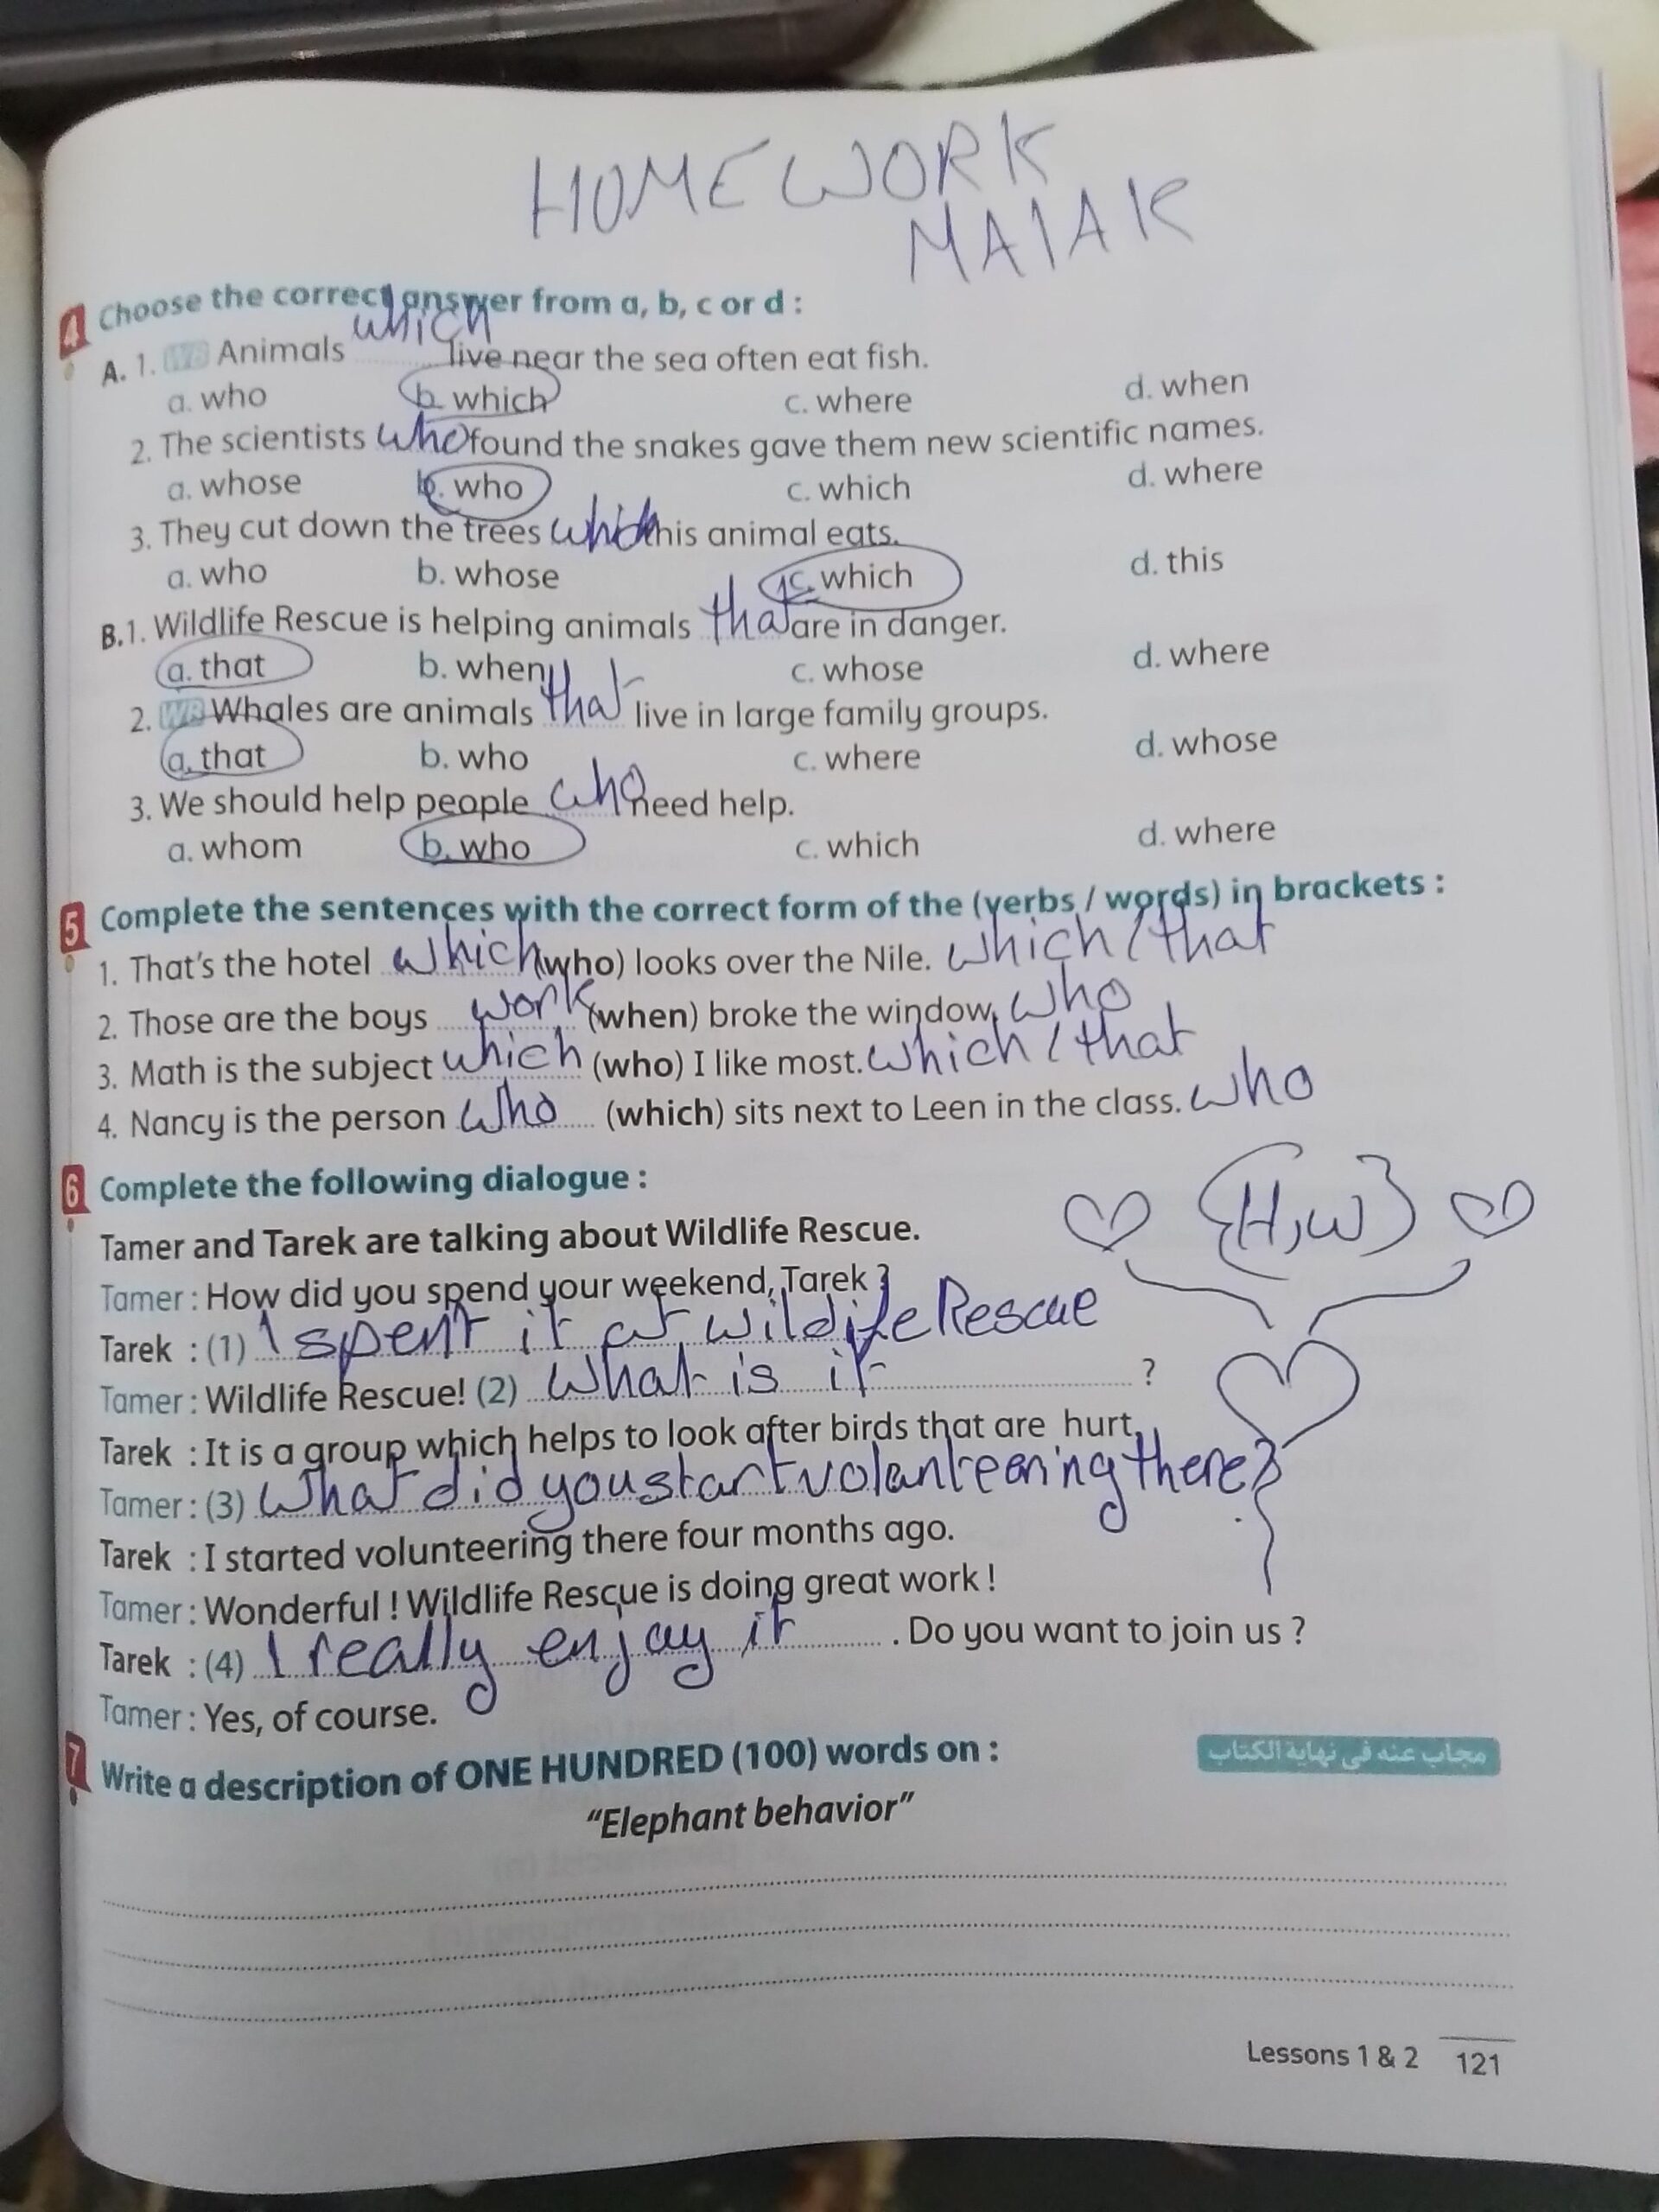 HOMEWORK
MAlAK
4 Choose the correct answer from a, b, c or d :
A. 1. WB Animals which live near the sea often eat fish.
a. who b. which c. where d. when
2. The scientists who found the snakes gave them new scientific names.
a. whose b. who c. which d. where
3. They cut down the trees which this animal eats.
a. who b. whose c. which d. this
B. 1. Wildlife Rescue is helping animals that are in danger.
a. that b. when c. whose d. where
2. WB Whales are animals that live in large family groups.
a. that b. who c. where d. whose
3. We should help people who need help.
a. whom b. who c. which d. where
5 Complete the sentences with the correct form of the (verbs / words) in brackets :
1. That's the hotel which (who) looks over the Nile. which / that
2. Those are the boys work (when) broke the window. who
3. Math is the subject which (who) I like most. which / that
4. Nancy is the person who (which) sits next to Leen in the class. who
6 Complete the following dialogue :
{H,W}
Tamer and Tarek are talking about Wildlife Rescue.
Tamer : How did you spend your weekend, Tarek ?
Tarek : (1) I spent it at wildife Rescue
Tamer : Wildlife Rescue! (2) what is it ?
Tarek : It is a group which helps to look after birds that are hurt.
Tamer : (3) what did you start volanteering there?
Tarek : I started volunteering there four months ago.
Tamer : Wonderful ! Wildlife Rescue is doing great work !
Tarek : (4) I really enjay it . Do you want to join us ?
Tamer : Yes, of course.
7 Write a description of ONE HUNDRED (100) words on : مجاب عنه فى نهاية الكتاب
"Elephant behavior"
Lessons 1 & 2 121